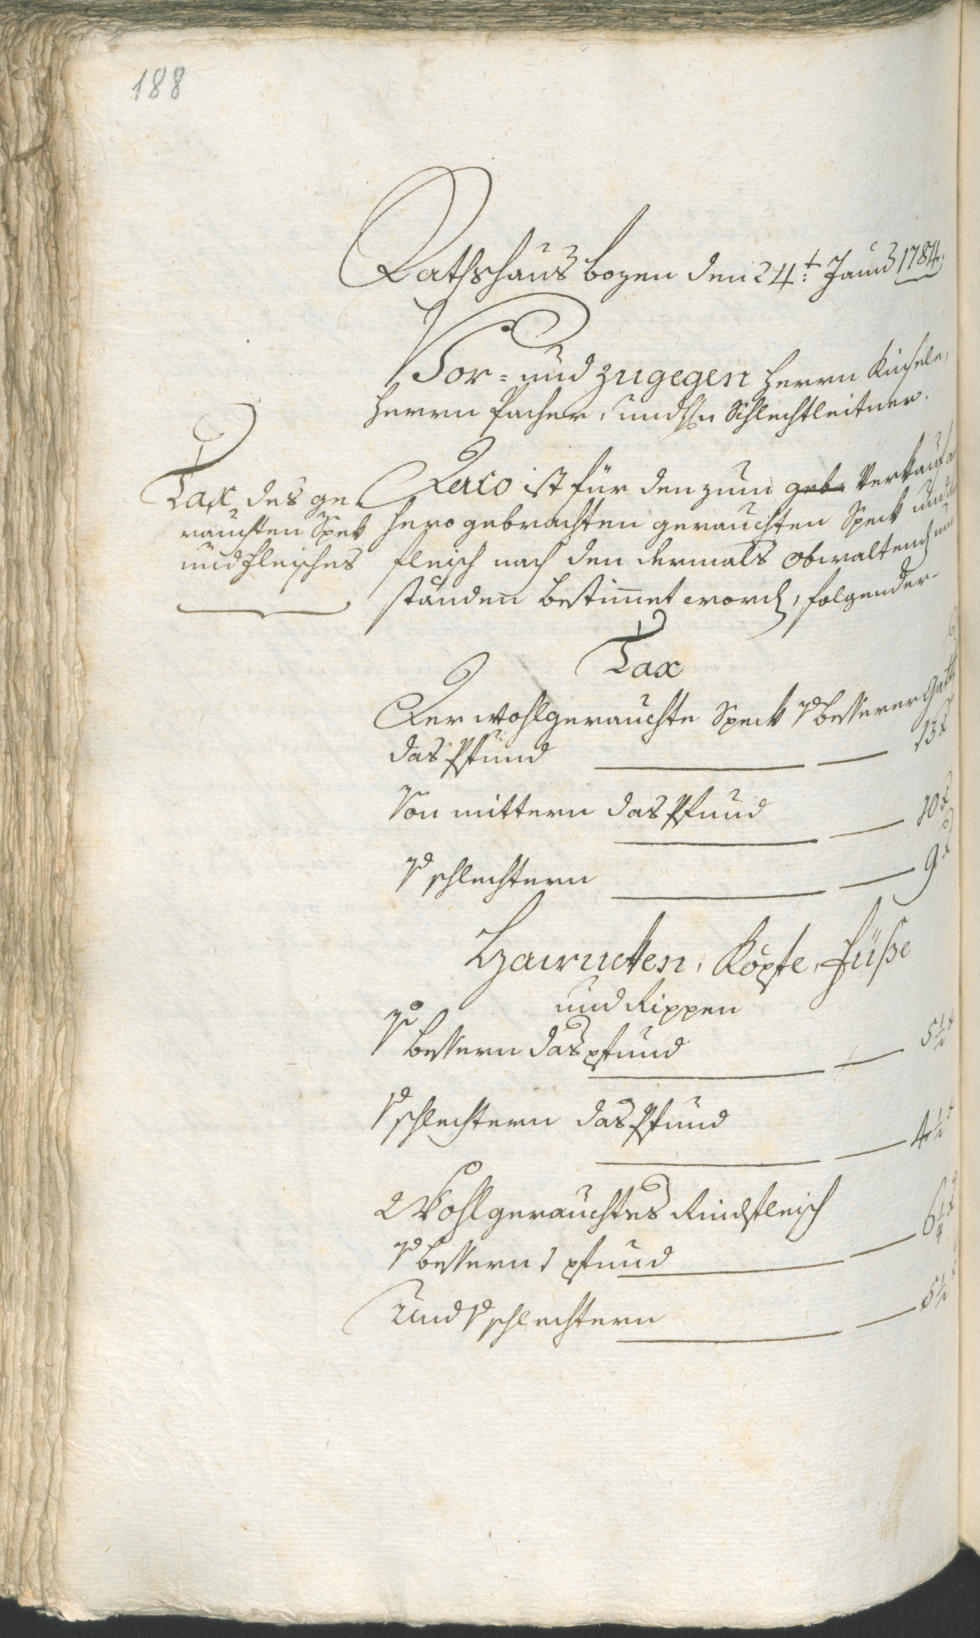 188
Rathshaus bozen den 24t: Jannr 1784.
Vor- und zugegen Herrn Kinsele,
Herrn Pacher, und Hn Schlechtleitner.
Tax des ge
rauchten Spek
und Fleisches
Dato ist für den zum geb. Verkauf a
hero gebrachten gerauchten Speck und
Fleisch nach den dermals obwaltend um
ständen bestimet word, folgender-
Tax
Der wohlgerauchte Speck p besserer Gatt
das Pfund 13 x
Von mittern das Pfund 10 x
p schlechtern 9 x
Hamen, Köpfe, Füße
und Rippen
p bessern das pfund 5½ x
p schlechtern das Pfund 4½ x
Wohlgerauchtes Rindfleisch
p bessern 1 pfund 6¼ x
Und p schlechtern 5½